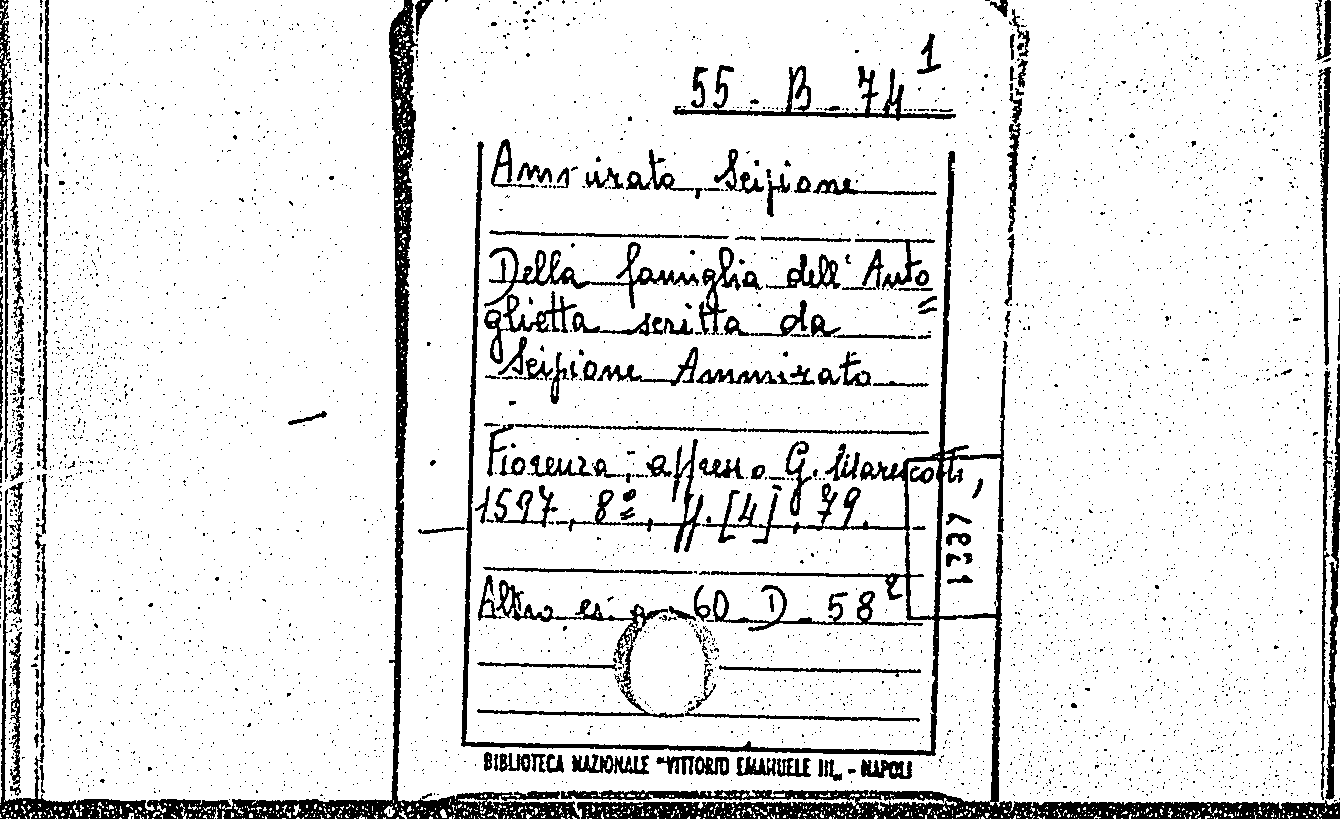 55 - B - 74 1
Ammirato, Scipione
Della famiglia dell' Anto=
glietta scritta da
Scipione Ammirato.
Fiorenza, appresso G. Marescotti,
1597, 8º, ff. [4], 79.
Altro es. a 60 D - 58 2
BIBLIOTECA NAZIONALE "VITTORIO EMANUELE III„ - NAPOLI